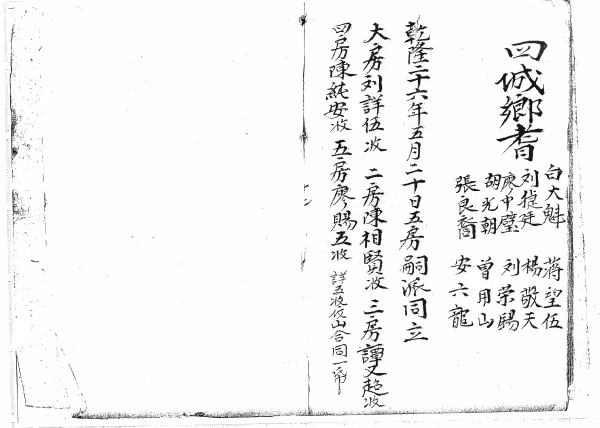 四城鄉耆
白大魁 蔣望伍
刘捷廷 楊敬天
廖中璧 刘荣賜
胡光朝 曾用山
張良喬 安六龍
乾隆二十六年五月二十日五房嗣派同立
大房刘詳伍收 二房陳相賢收 三房譚又超收
四房陳純安收 五房廖賜五收 詳五收仅山合同一帋